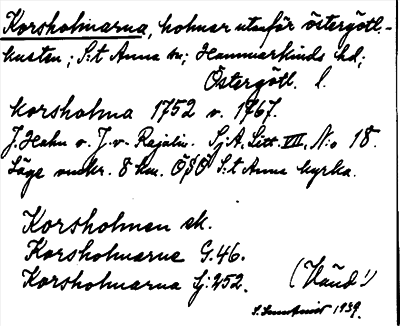 Korsholmarna, holmar utanför östergötl.-
kusten; S:t Anna sn; Hammarkinds hd;
Östergötl. l.
Korsholma 1752 v. 1767.
J. Hahn o. J. v. Rajalin. Sj.A. Litt. VII, N:o 18.
Läge omkr. 8 km. ÖSÖ S:t Anna kyrka.
Korsholmen ek.
Korsholmarne G.46.
Korsholmarna Sj:252. (Händ!)
1939.